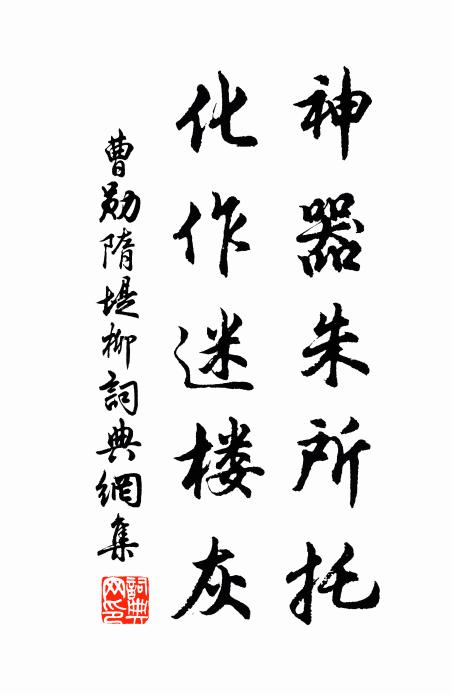 神器朱所托
化作迷楼灰
曹勋隋堤柳詞典網集
詞典網印